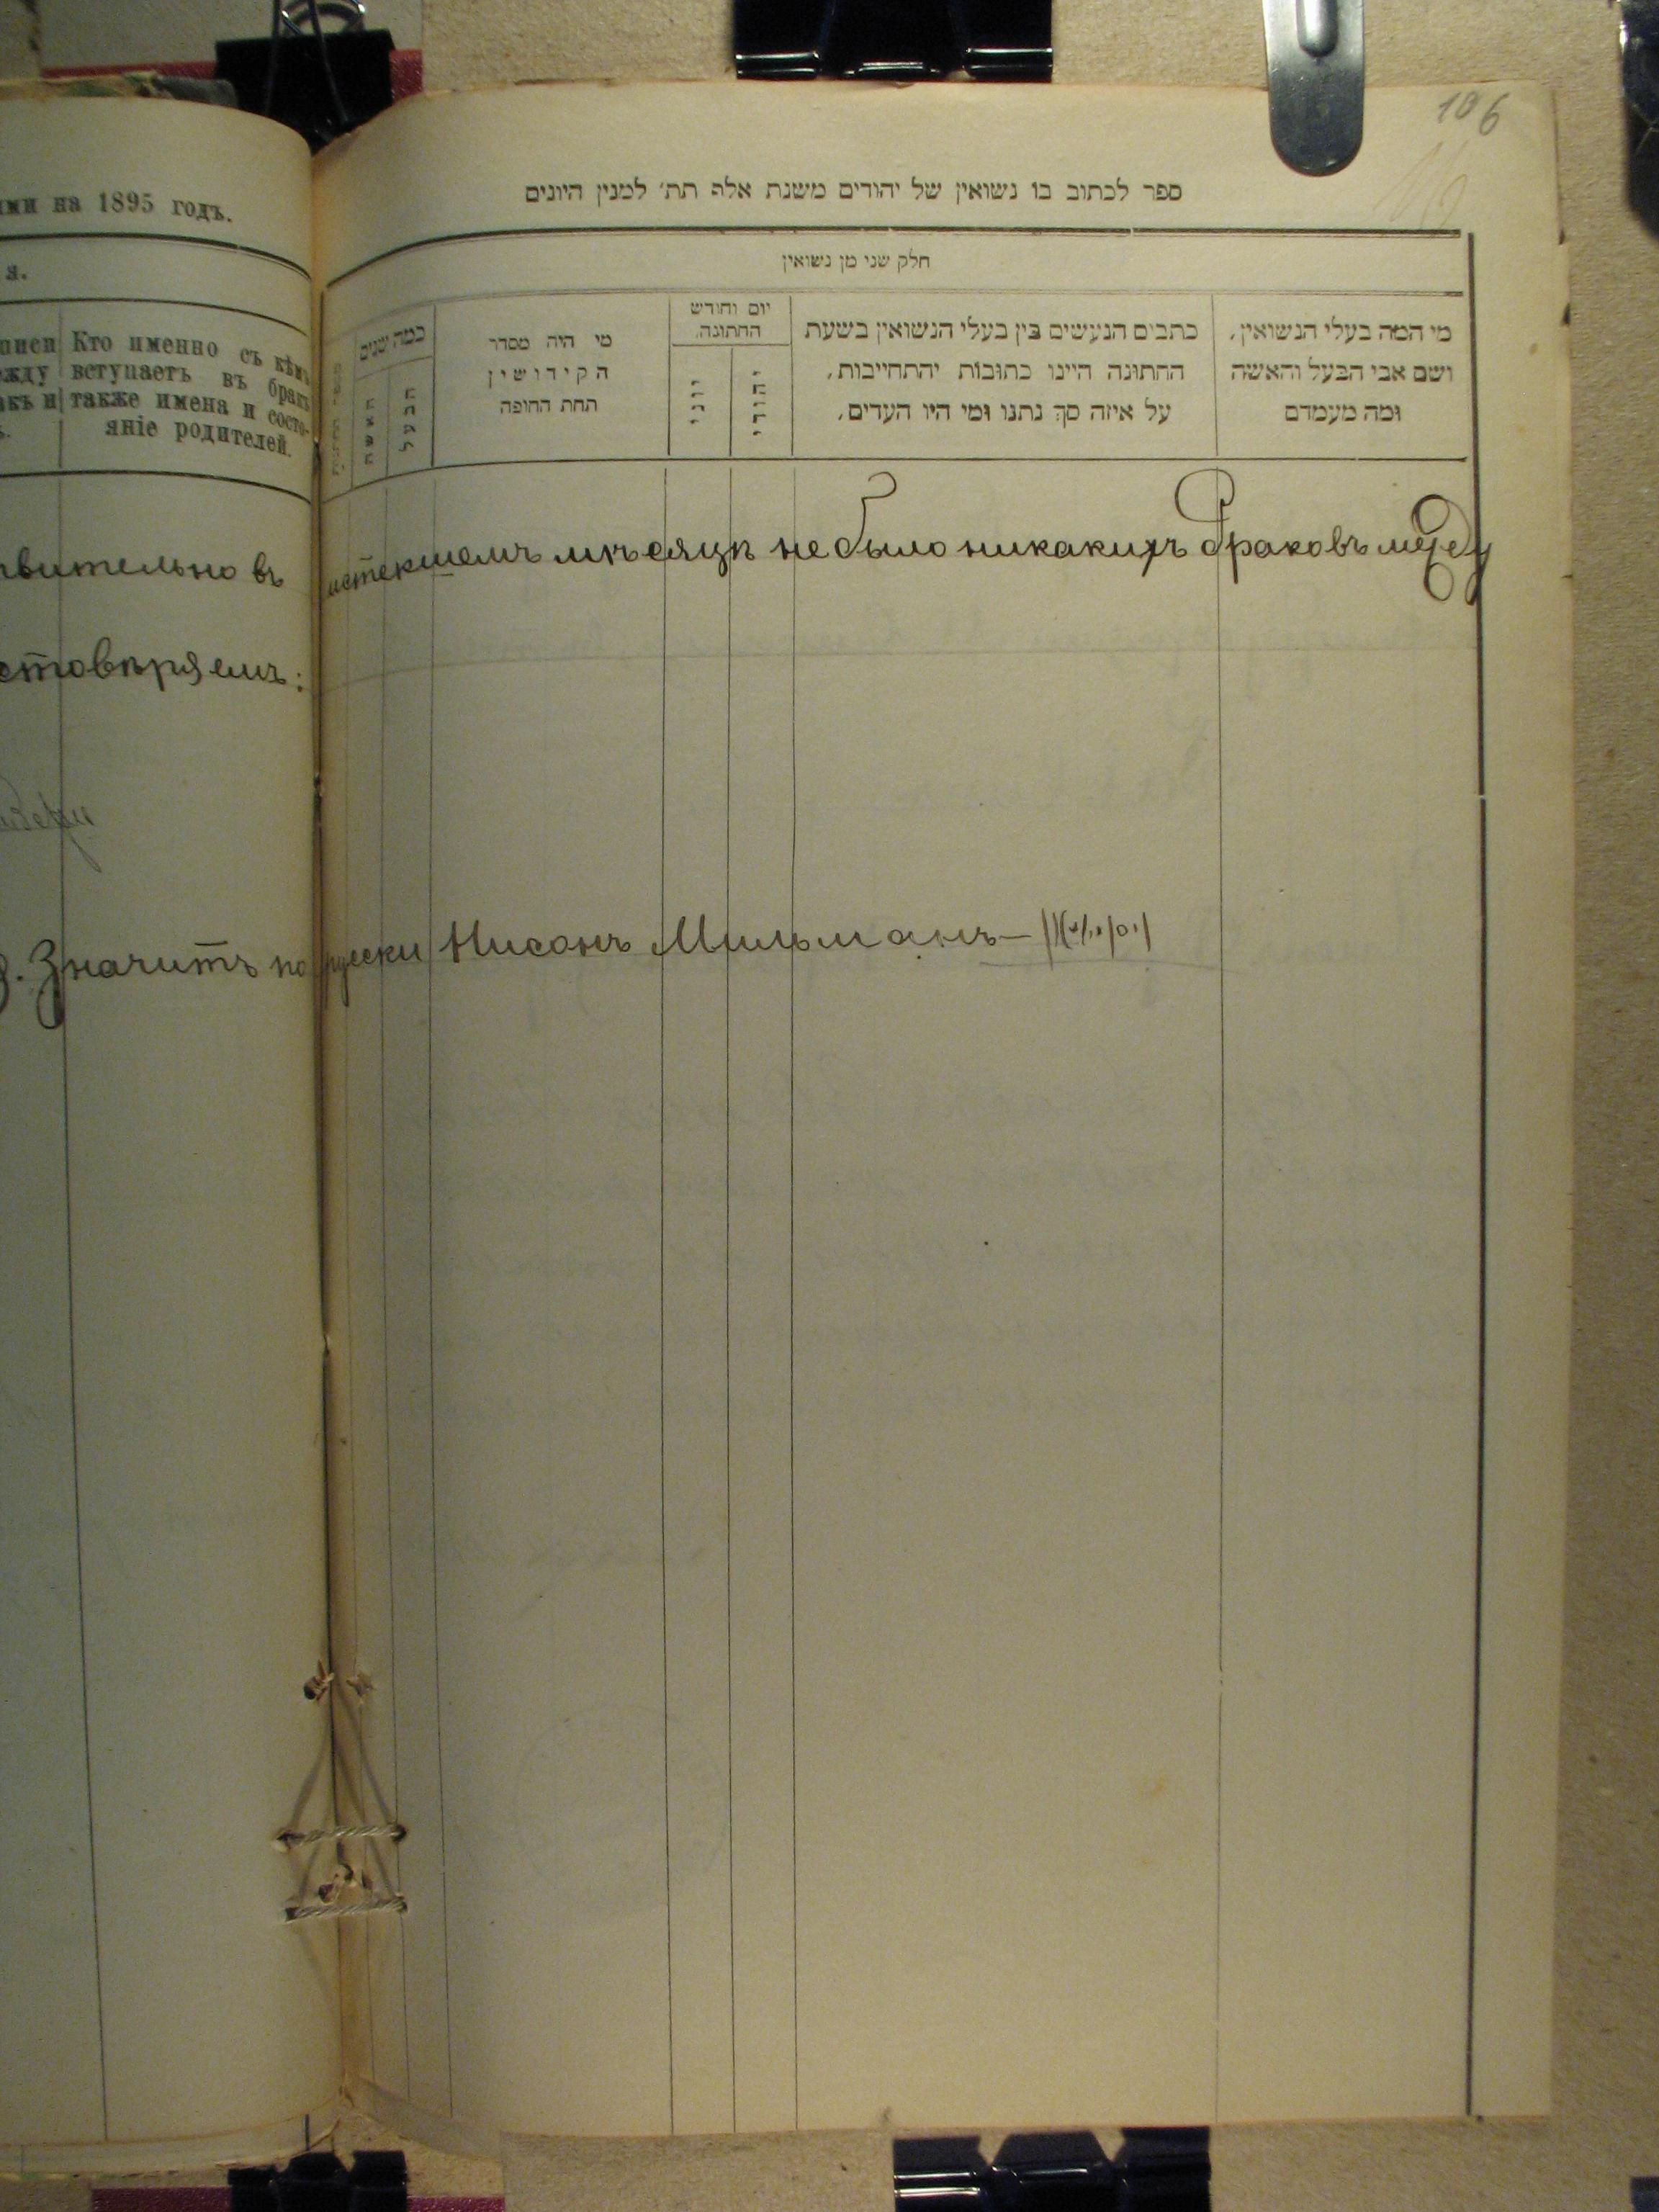 106
ими на 1895 годъ.
ספר לכתוב בו נשואין של יהודים משנת אלף תת׳ למנין היונים
я.
חלק שני מן נשואין
Кто именно съ кѣмъ
вступаетъ въ бракъ
также имена и состо-
яніе родителей.
כמה שנים
האשה
הבעל
מי היה מסדר
הקידושין
תחת החופה
יום וחודש
החתונה
יוני
יהודי
כתבים הנעשים בין בעלי הנשואין בשעת
החתונה היינו כתובות והתחייבות,
על איזה סך נתנו ומי היו העדים,
מי המה בעלי הנשואין,
ושם אבי הבעל והאשה
ומה מעמדם
вительно въ истекшемъ мѣсяцѣ не было никакихъ браковъ между
стовѣряемъ:
Значитъ по русски Нисонъ Мильманъ —